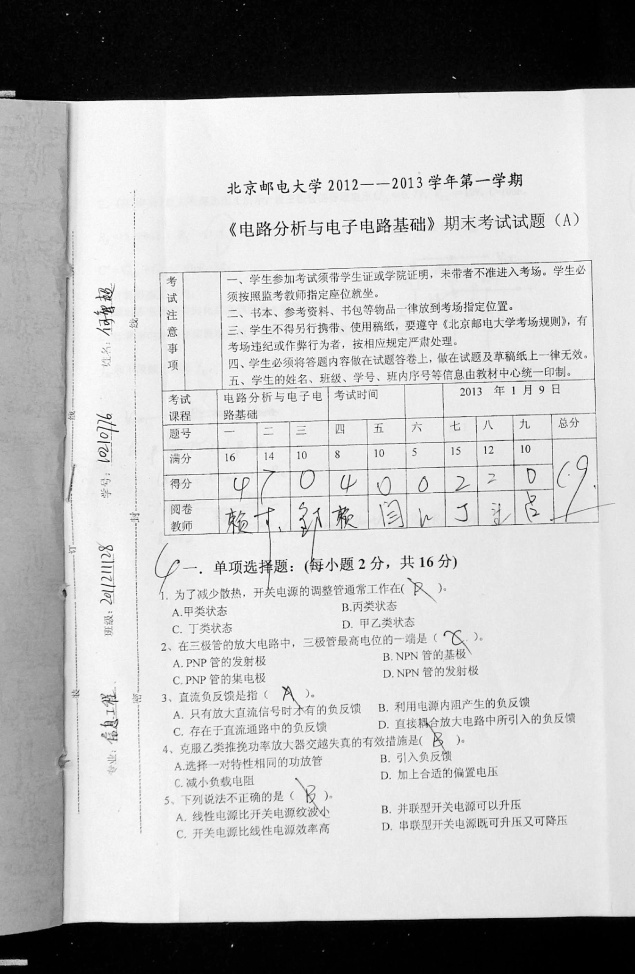 北京邮电大学 2012——2013 学年第一学期
《电路分析与电子电路基础》期末考试试题（A）
考试注意事项
一、学生参加考试须带学生证或学院证明，未带者不准进入考场。学生必
须按照监考教师指定座位就坐。
二、书本、参考资料、书包等物品一律放到考场指定位置。
三、学生不得另行携带、使用稿纸，要遵守《北京邮电大学考场规则》，有
考场违纪或作弊行为者，按相应规定严肃处理。
四、学生必须将答题内容做在试题答卷上，做在试题及草稿纸上一律无效。
五、学生的姓名、班级、学号、班内序号等信息由教材中心统一印制。
考试课程 电路分析与电子电路基础 考试时间 2013 年 1 月 9 日
题号 一 二 三 四 五 六 七 八 九 总分
满分 16 14 10 8 10 5 15 12 10
得分 4 7 0 4 0 0 2 2 0 19
阅卷教师
4
一．单项选择题：(每小题 2 分，共 16 分)
1. 为了减少散热，开关电源的调整管通常工作在( B )。
A.甲类状态 B.丙类状态
C. 丁类状态 D. 甲乙类状态
2、在三极管的放大电路中，三极管最高电位的一端是（ C ）。
A. PNP 管的发射极 B. NPN 管的基极
C. PNP 管的集电极 D. NPN 管的发射极
3、直流负反馈是指（ A ）。
A. 只有放大直流信号时才有的负反馈 B. 利用电源内阻产生的负反馈
C. 存在于直流通路中的负反馈 D. 直接耦合放大电路中所引入的负反馈
4、克服乙类推挽功率放大器交越失真的有效措施是( B )。
A.选择一对特性相同的功放管 B. 引入负反馈
C.减小负载电阻 D. 加上合适的偏置电压
5、下列说法不正确的是（ B ）。
A. 线性电源比开关电源纹波小 B. 并联型开关电源可以升压
C. 开关电源比线性电源效率高 D. 串联型开关电源既可升压又可降压
姓名：
学号：
班级：2011211128
专业：信息工程
装
订
线
密
封
线